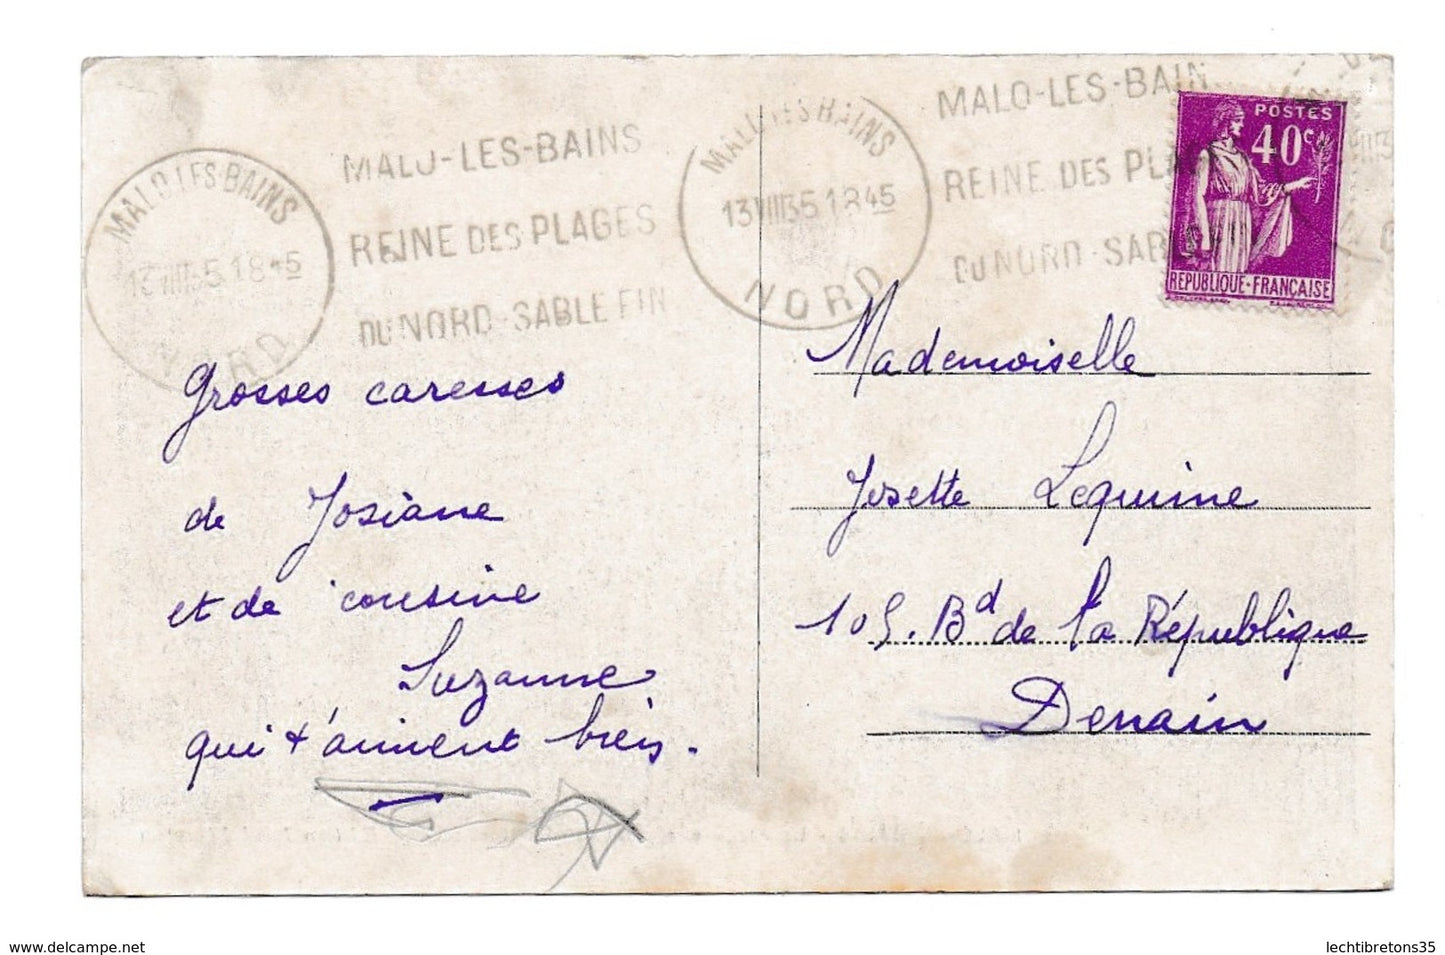 MALO-LES-BAINS
REINE DES PLAGES
DU NORD-SABLE FIN
MALO LES BAINS
13 VIII 35 18 45
NORD
MALO LES BAINS
13 VIII 35 18 45
NORD
MALO-LES-BAIN
REINE DES PLA
DU NORD-SABLE
POSTES
40c
REPUBLIQUE-FRANÇAISE
Grosses caresses
de Josiane
et de cousine
Suzanne
qui t'aiment bien.
Mademoiselle
Josette Lequinne
105. Bd de la République
Denain
lechtibretons35
www.delcampe.net